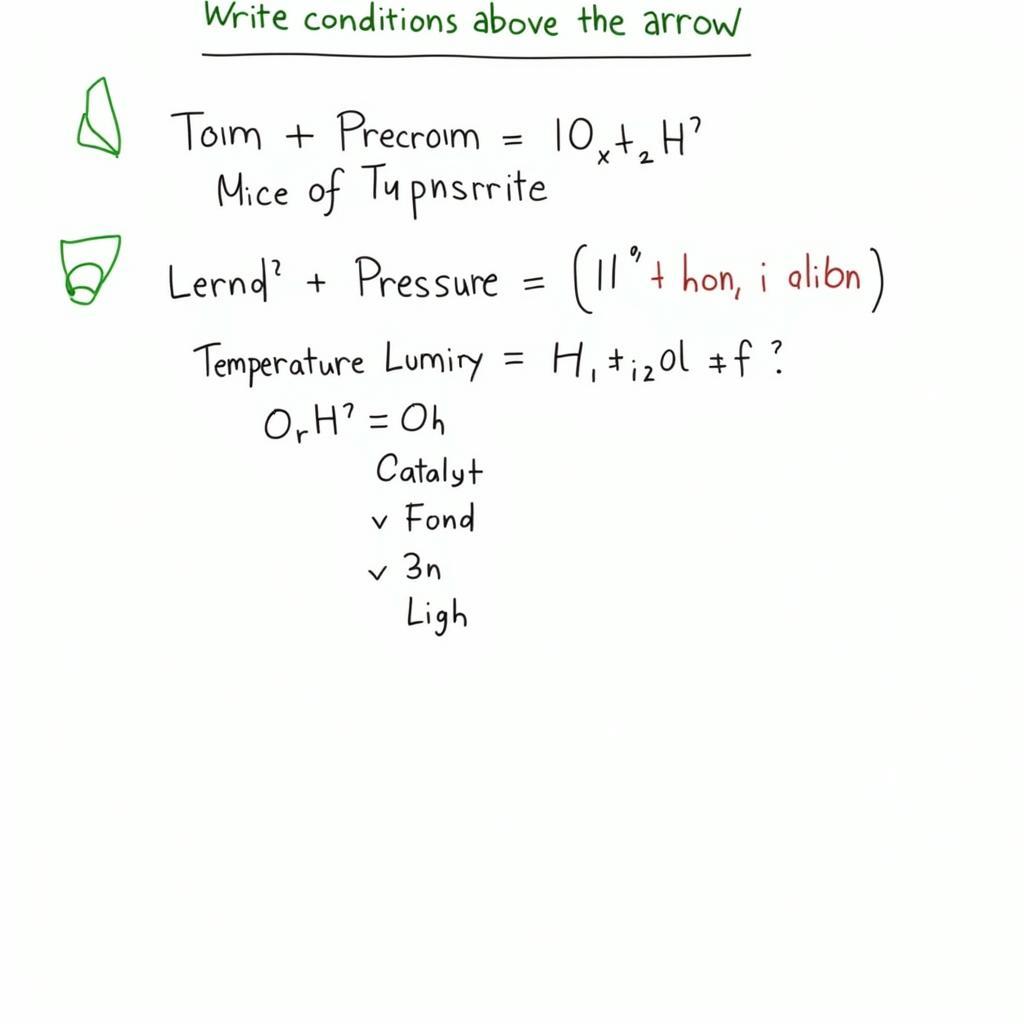 Write conditions above the arrow
Toım + Precroım = 10ₓ+₂ H?
Mice of Typnsrrite
Lernd? + Pressure = (11% + hon, i alibn)
Temperature Lumiry = H, ‡i₂ol ‡f ?
OᵣH? = Oh
Catalyt
v Fond
v 3n
Ligh